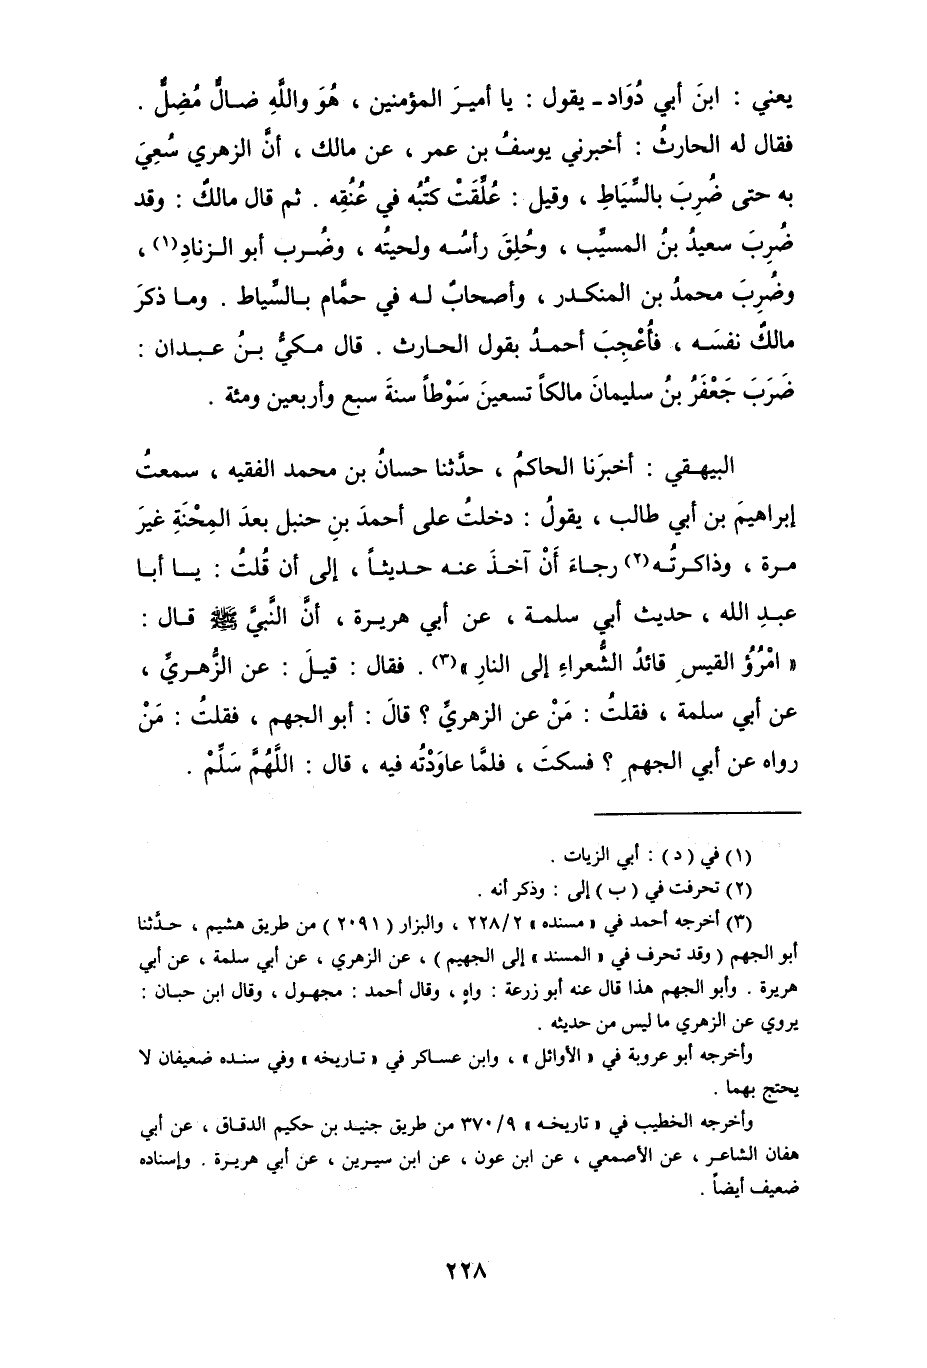 يعني : ابنَ أبي دُوَاد ـ يقول : يا أميرَ المؤمنين ، هُوَ واللَّهِ ضالٌّ مُضِلٌّ .
فقال له الحارثُ : أخبرني يوسفُ بن عمر ، عن مالك ، أنَّ الزهري سُعِيَ
به حتى ضُرِبَ بالسِّيَاطِ ، وقيل : عُلِّقَتْ كتُبُه في عُنُقِه . ثم قال مالكٌ : وقد
ضُرِبَ سعيدُ بنُ المسيِّب ، وحُلِقَ رأسُه ولحيتُه ، وضُرب أبو الزنادِ(١) ،
وضُرِبَ محمدُ بن المنكدر ، وأصحابٌ له في حمَّام بالسِّياط . وما ذكرَ
مالكٌ نفسَه ، فأُعْجِبَ أحمدُ بقول الحارث . قال مكيُّ بنُ عبدان :
ضَرَبَ جَعْفَرُ بنُ سليمانَ مالكاً تسعينَ سَوْطاً سنةَ سبع وأربعين ومئة .
البيهقي : أخبرَنا الحاكمُ ، حدَّثنا حسانُ بن محمد الفقيه ، سمعتُ
إبراهيمَ بن أبي طالب ، يقولُ : دخلتُ على أحمدَ بنِ حنبل بعدَ المِحْنَةِ غيرَ
مرة ، وذاكرتُه(٢) رجاءَ أَنْ آخذَ عنه حديثاً ، إلى أن قُلتُ : يا أبا
عبدِ الله ، حديث أبي سلمة ، عن أبي هريرة ، أنَّ النَّبيَّ ﷺ قال :
« امْرُؤُ القيسِ قائدُ الشُّعراءِ إلى النارِ »(٣) . فقال : قيلَ : عن الزُّهريِّ ،
عن أبي سلمة ، فقلتُ : مَنْ عن الزهريِّ ؟ قالَ : أبو الجهم ، فقلتُ : مَنْ
رواه عن أبي الجهمِ ؟ فسكتَ ، فلمَّا عاوَدْتُه فيه ، قال : اللَّهُمَّ سَلِّمْ .
(١) في ( د ) : أبي الزيات .
(٢) تحرفت في ( ب ) إلى : وذكر أنه .
(٣) أخرجه أحمد في « مسنده » ٢٢٨/٢ ، والبزار ( ٢٠٩١ ) من طريق هشيم ، حدَّثنا
أبو الجهم ( وقد تحرف في « المسند » إلى الجهيم ) ، عن الزهري ، عن أبي سلمة ، عن أبي
هريرة . وأبو الجهم هذا قال عنه أبو زرعة : واهٍ ، وقال أحمد : مجهول ، وقال ابن حبان :
يروي عن الزهري ما ليس من حديثه .
وأخرجه أبو عروبة في « الأوائل » ، وابن عساكر في « تاريخه » وفي سنده ضعيفان لا
يحتج بهما .
وأخرجه الخطيب في « تاريخه » ٣٧٠/٩ من طريق جنيد بن حكيم الدقاق ، عن أبي
هفان الشاعر ، عن الأصمعي ، عن ابن عون ، عن ابن سيرين ، عن أبي هريرة . وإسناده
ضعيف أيضاً .
٢٢٨